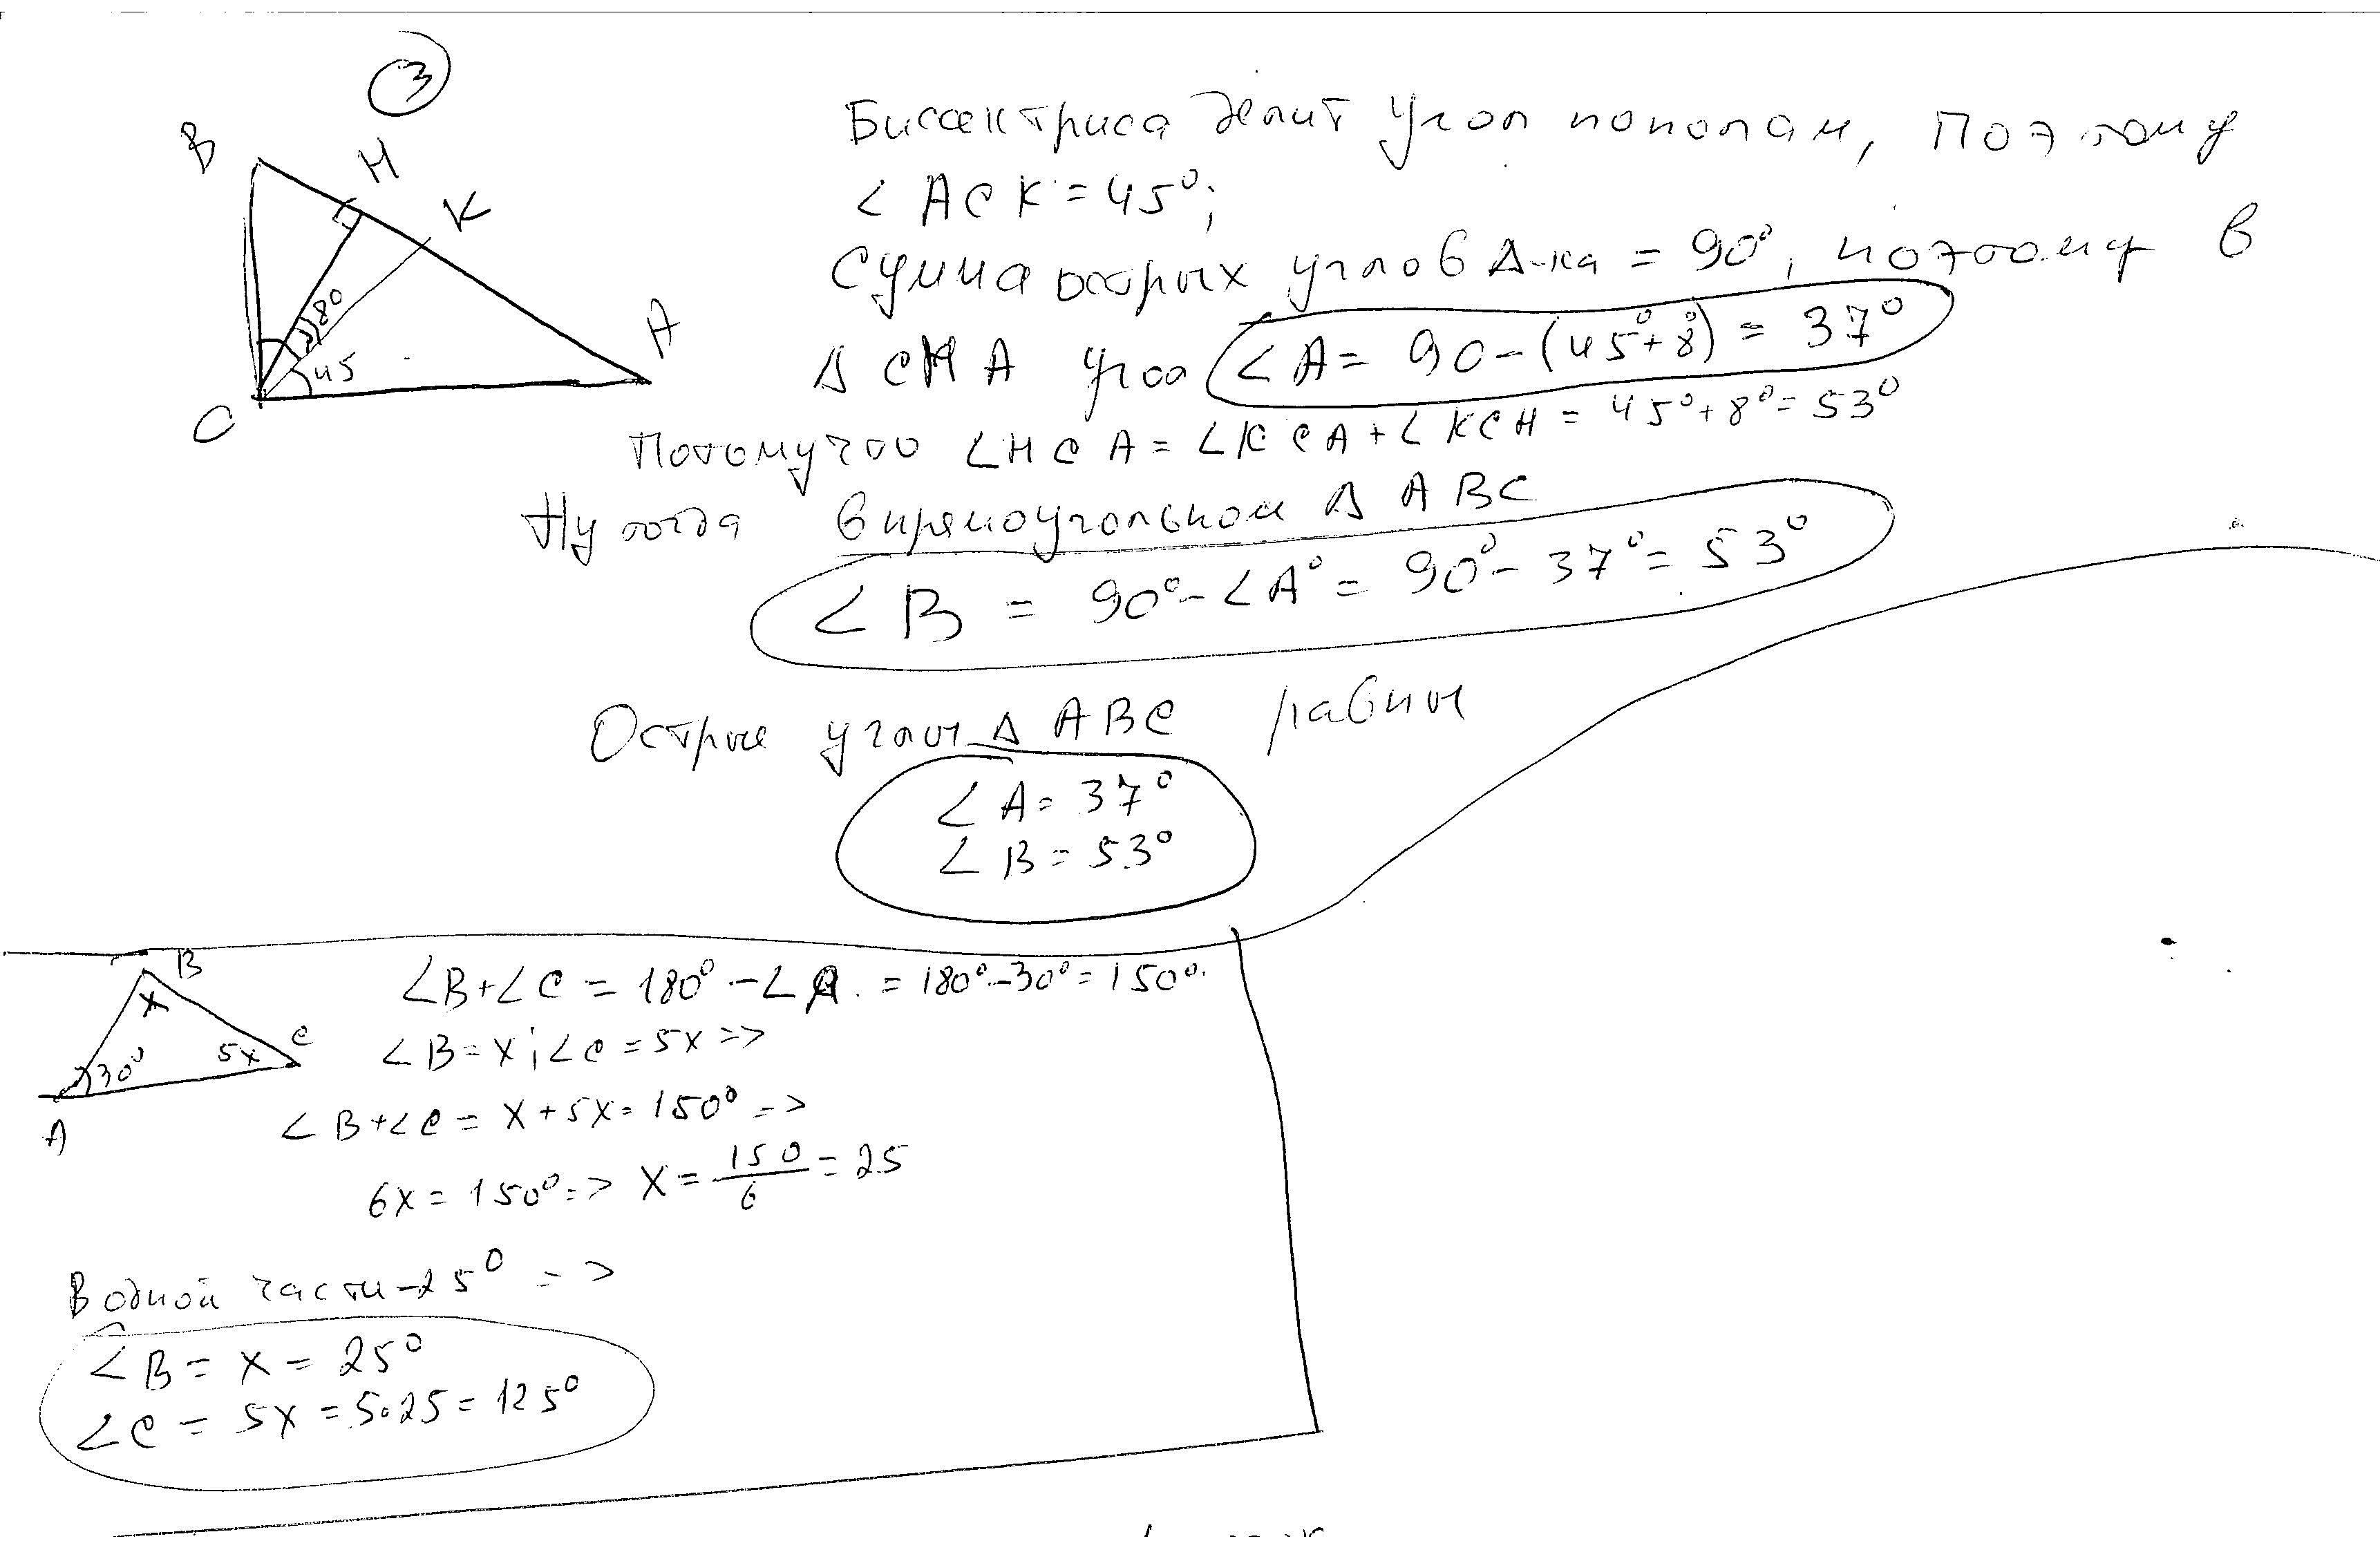 3
B
H
K
A
C
8°
45
Биссектриса делит угол пополам, Поэтому
∠ACK=45°;
Сумма острых углов Δ-ка = 90°, поэтому в
Δ CHA угол ∠A= 90-(45°+8°) = 37°
Потому что ∠HCA = ∠KCA+∠KCH = 45°+8°=53°
Ну тогда в прямоугольном Δ ABC
∠B = 90°-∠A° = 90°-37°= 53°
Острые углы Δ ABC равны
∠A= 37°
∠B = 53°
B
x
C
5x
30°
A
∠B+∠C = 180°-∠A = 180°-30°=150°
∠B=x; ∠C=5x =>
∠B+∠C = x+5x=150° =>
6x = 150° => x = 150/6 = 25
В одной части-25° =>
∠B = x = 25°
∠C = 5x = 5·25 = 125°